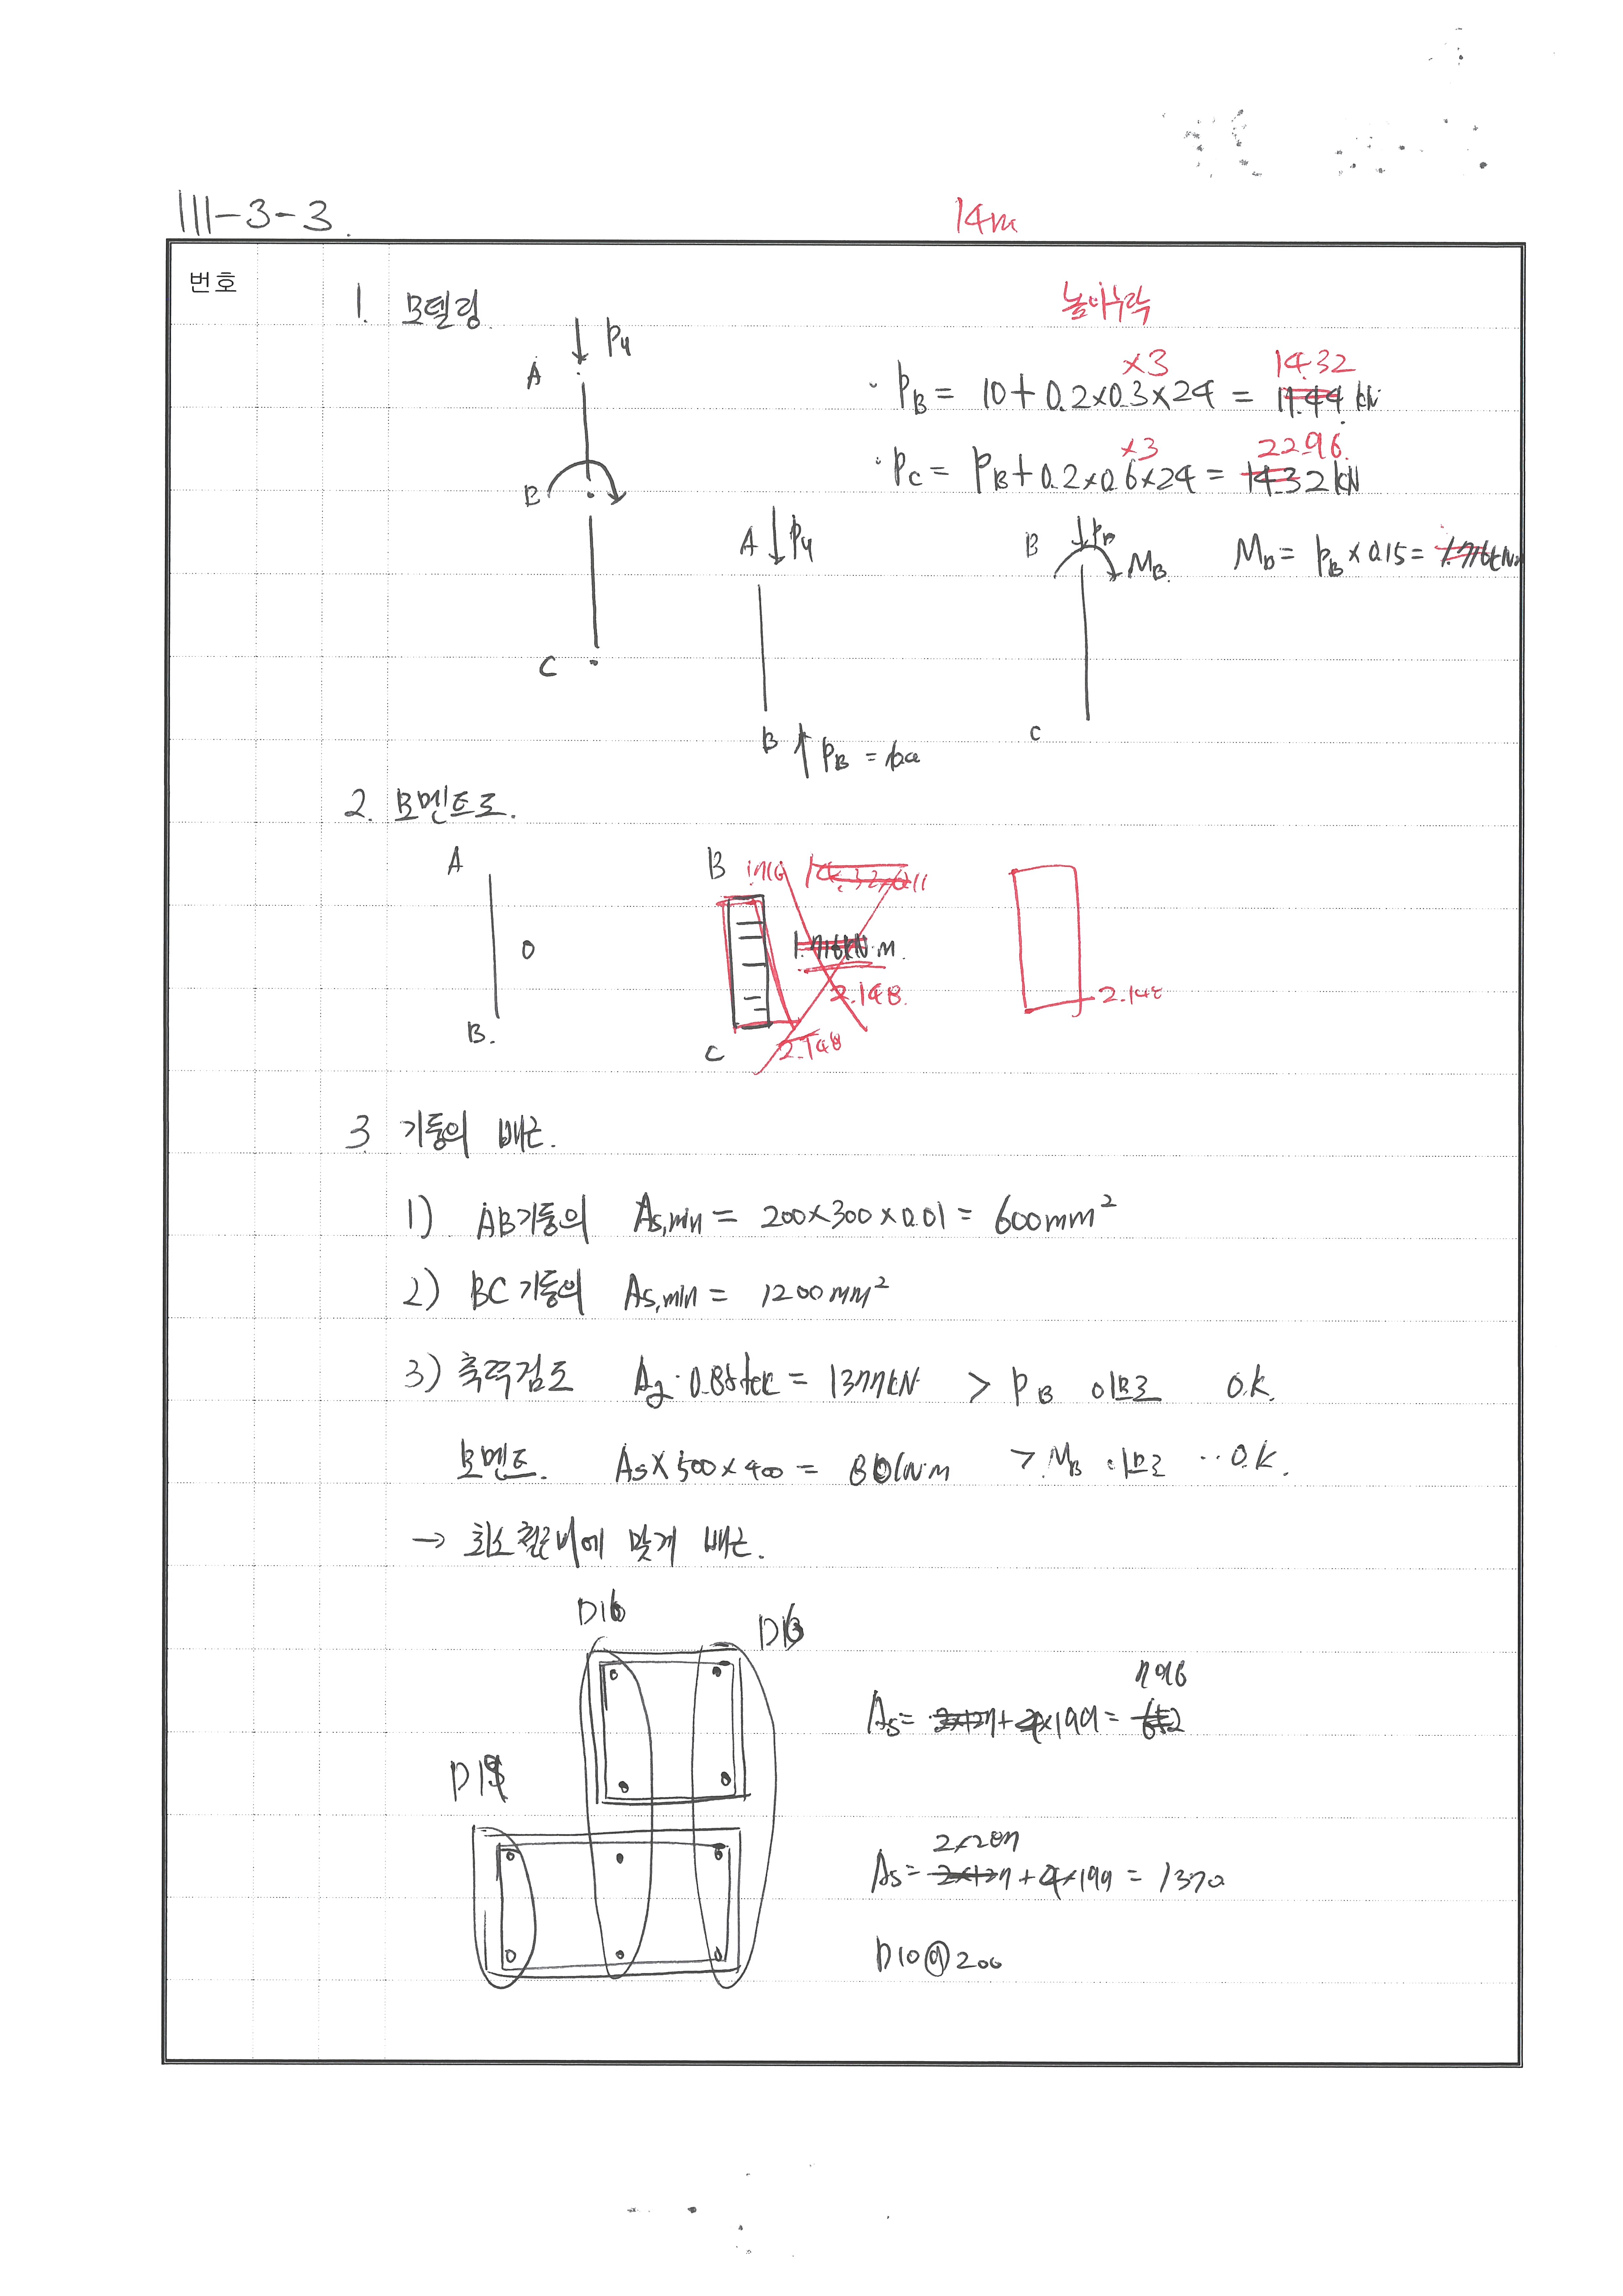 III-3-3.
14m
번호
1. 모델링
높이누락
A
Pu
×3
14.32
· PB = 10 + 0.2×0.3×24 = 11.44 kN
×3
22.96
· PC = PB + 0.2×0.6×24 = 14.32 kN
B
A Pu
B PB MB
MB = PB × 0.15 = 1.716kNm
C
B PB =
C
2. 모멘트도.
A
B
0
1.716kN·m.
2.148.
2.148
2.148
B.
C
3 기둥의 배근.
1) AB기둥의 As,min = 200×300×0.01 = 600mm²
2) BC기둥의 As,min = 1200mm²
3) 축력검토 Ag·0.85fck = 1377kN > PB 이므로 O.K.
모멘트. As×500×400 = 80kN·m > MB 이므로 ·· O.K.
→ 최소철근비에 맞게 배근.
D16
D13
796
As = 2×127 + 4×199 = 652
D19
2×287
As = 2×127 + 4×199 = 1370
D10@200